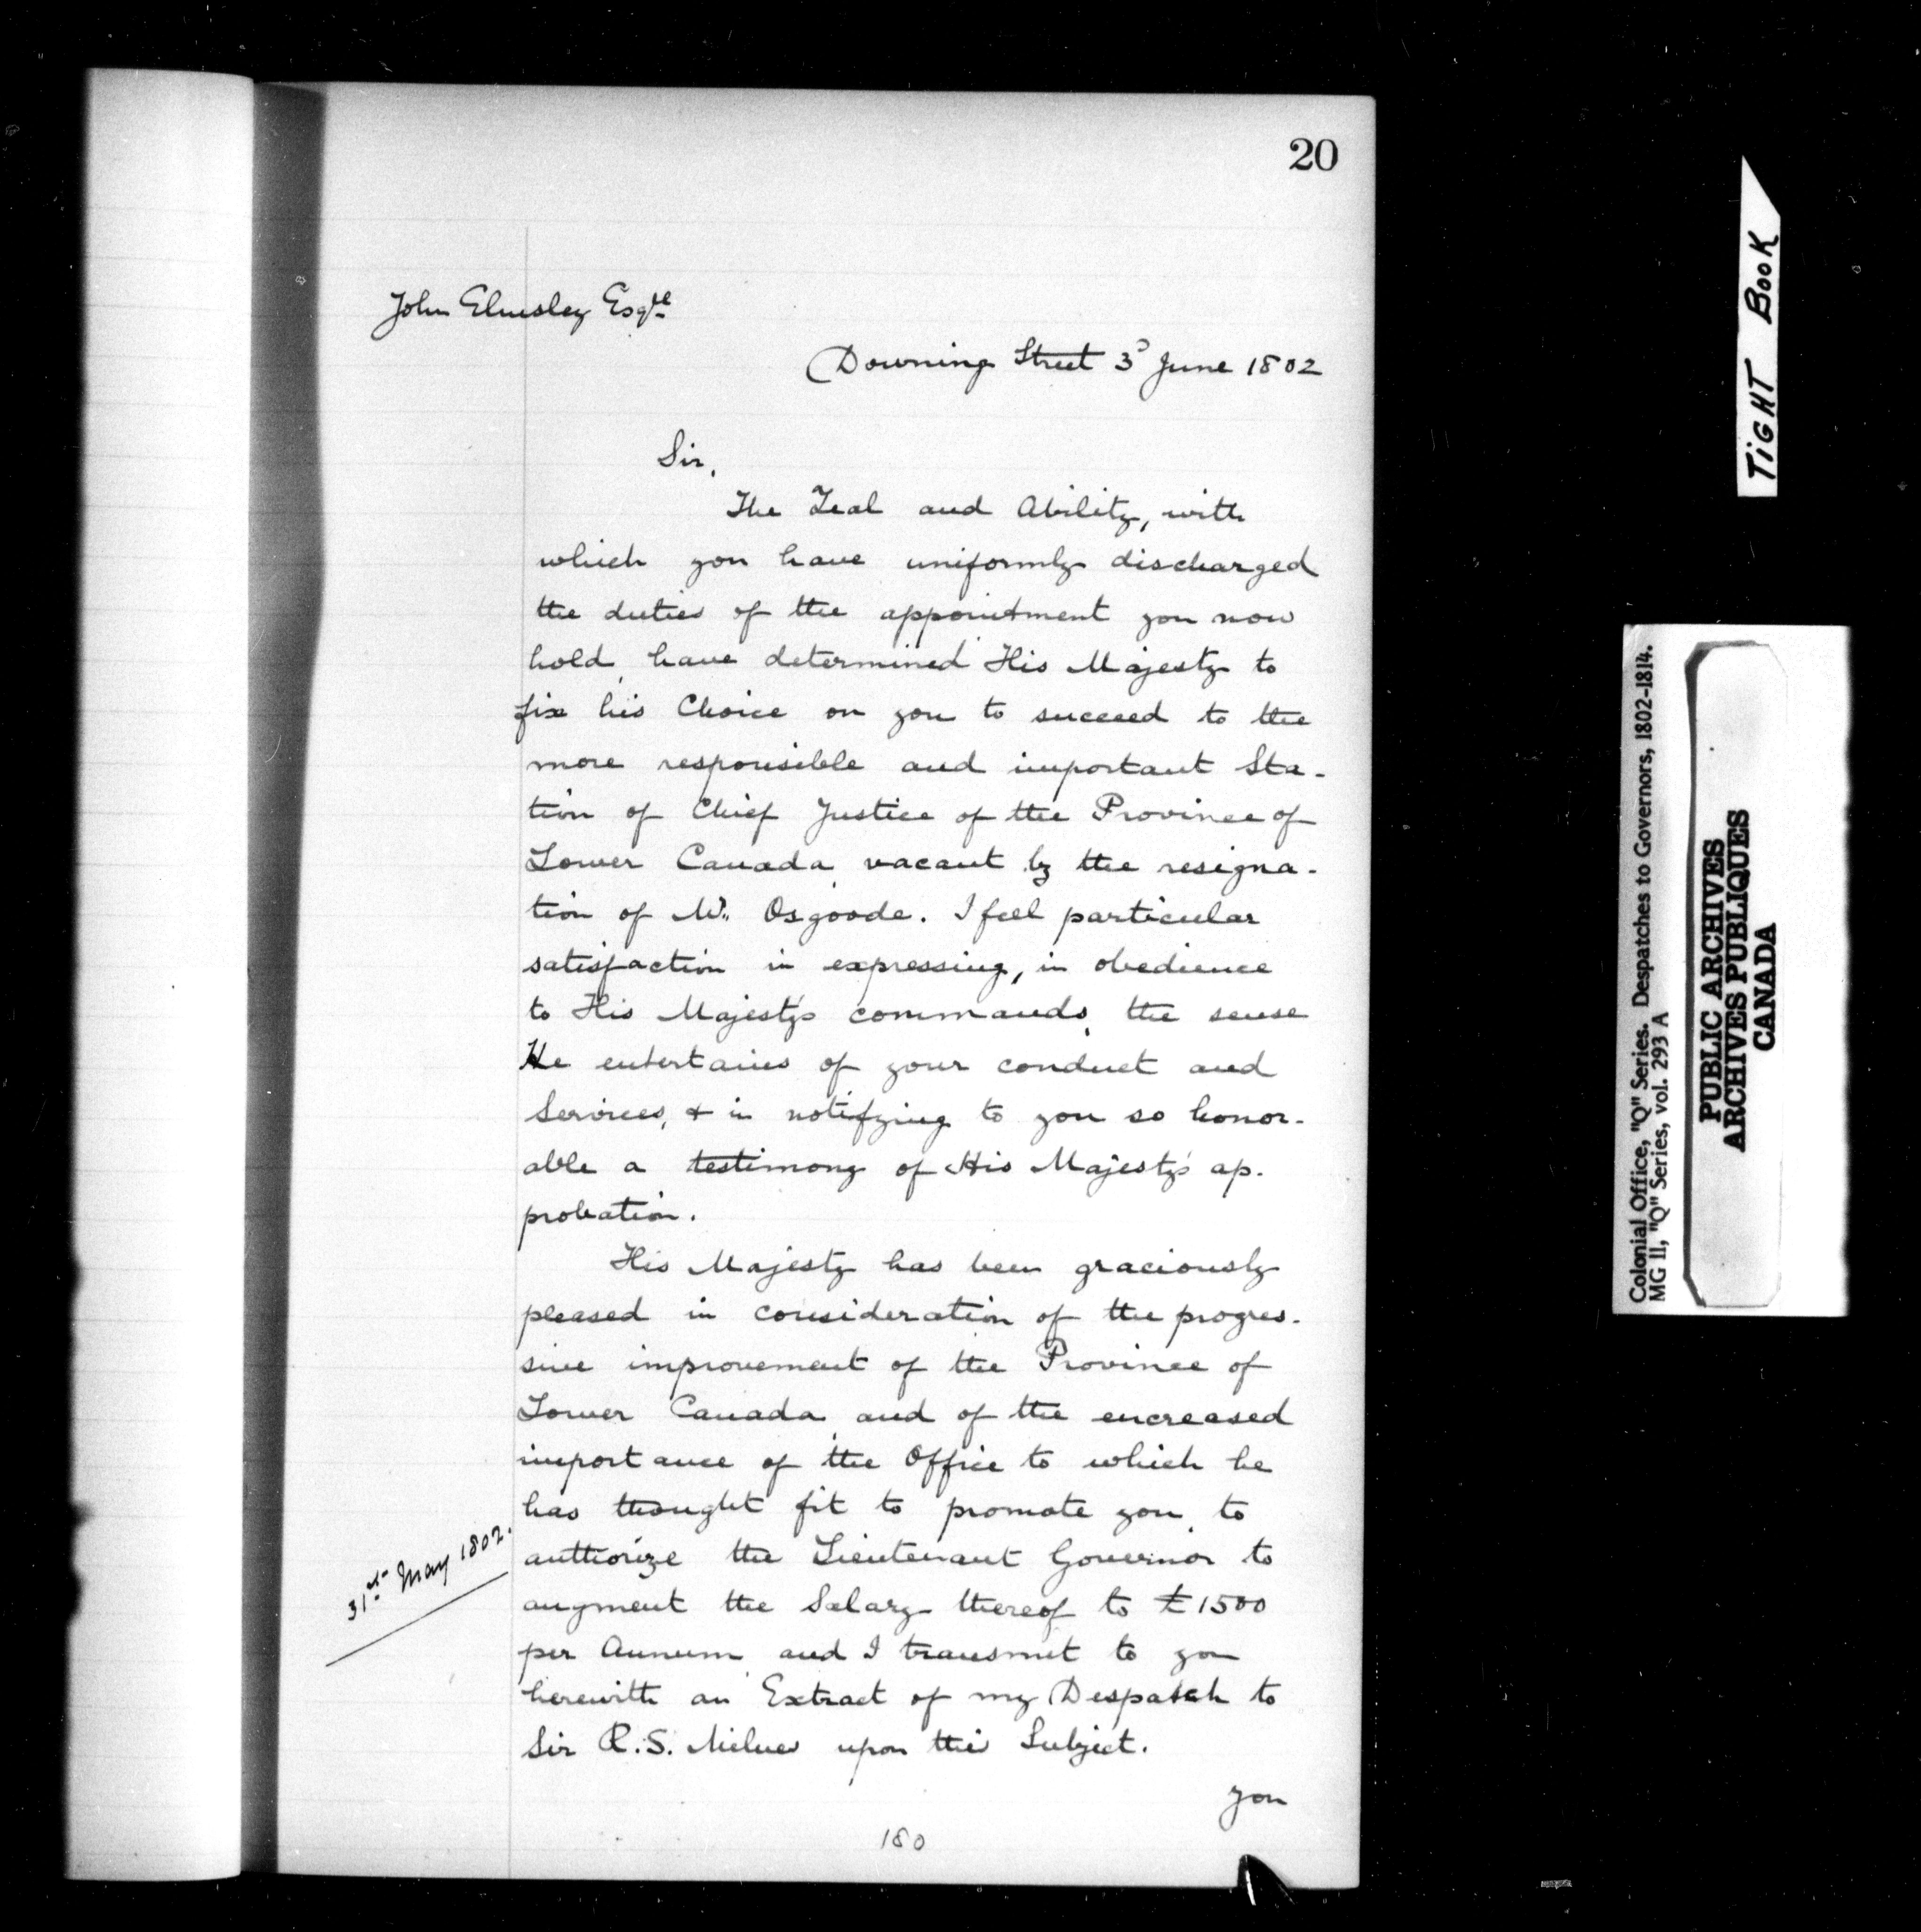 20
John Elmsley Esqre
Downing Street 3d June 1802
Sir,
The Zeal and Ability, with
which you have uniformly discharged
the duties of the appointment you now
hold, have determined His Majesty to
fix his Choice on you to succeed to the
more responsible and important Sta-
tion of Chief Justice of the Province of
Lower Canada, vacant by the resigna-
tion of Mr. Osgoode. I feel particular
satisfaction in expressing, in obedience
to His Majesty's commands, the sense
He entertains of your conduct and
Services, & in notifying to you so honor-
able a testimony of His Majesty's ap-
probation.
His Majesty has been graciously
pleased in consideration of the progres-
sive improvement of the Province of
Lower Canada, and of the encreased
importance of the Office to which he
has thought fit to promote you, to
authorize the Lieutenant Governor to
augment the Salary thereof to £1500
per Annum, and I transmit to you
herewith an Extract of my Despatch to
Sir R. S. Milnes upon this Subject.
you
31st May 1802.
180
TIGHT BOOK
Colonial Office, "Q" Series. Despatches to Governors, 1802-1814.
MG 11, "Q" Series, vol. 293 A
PUBLIC ARCHIVES
ARCHIVES PUBLIQUES
CANADA